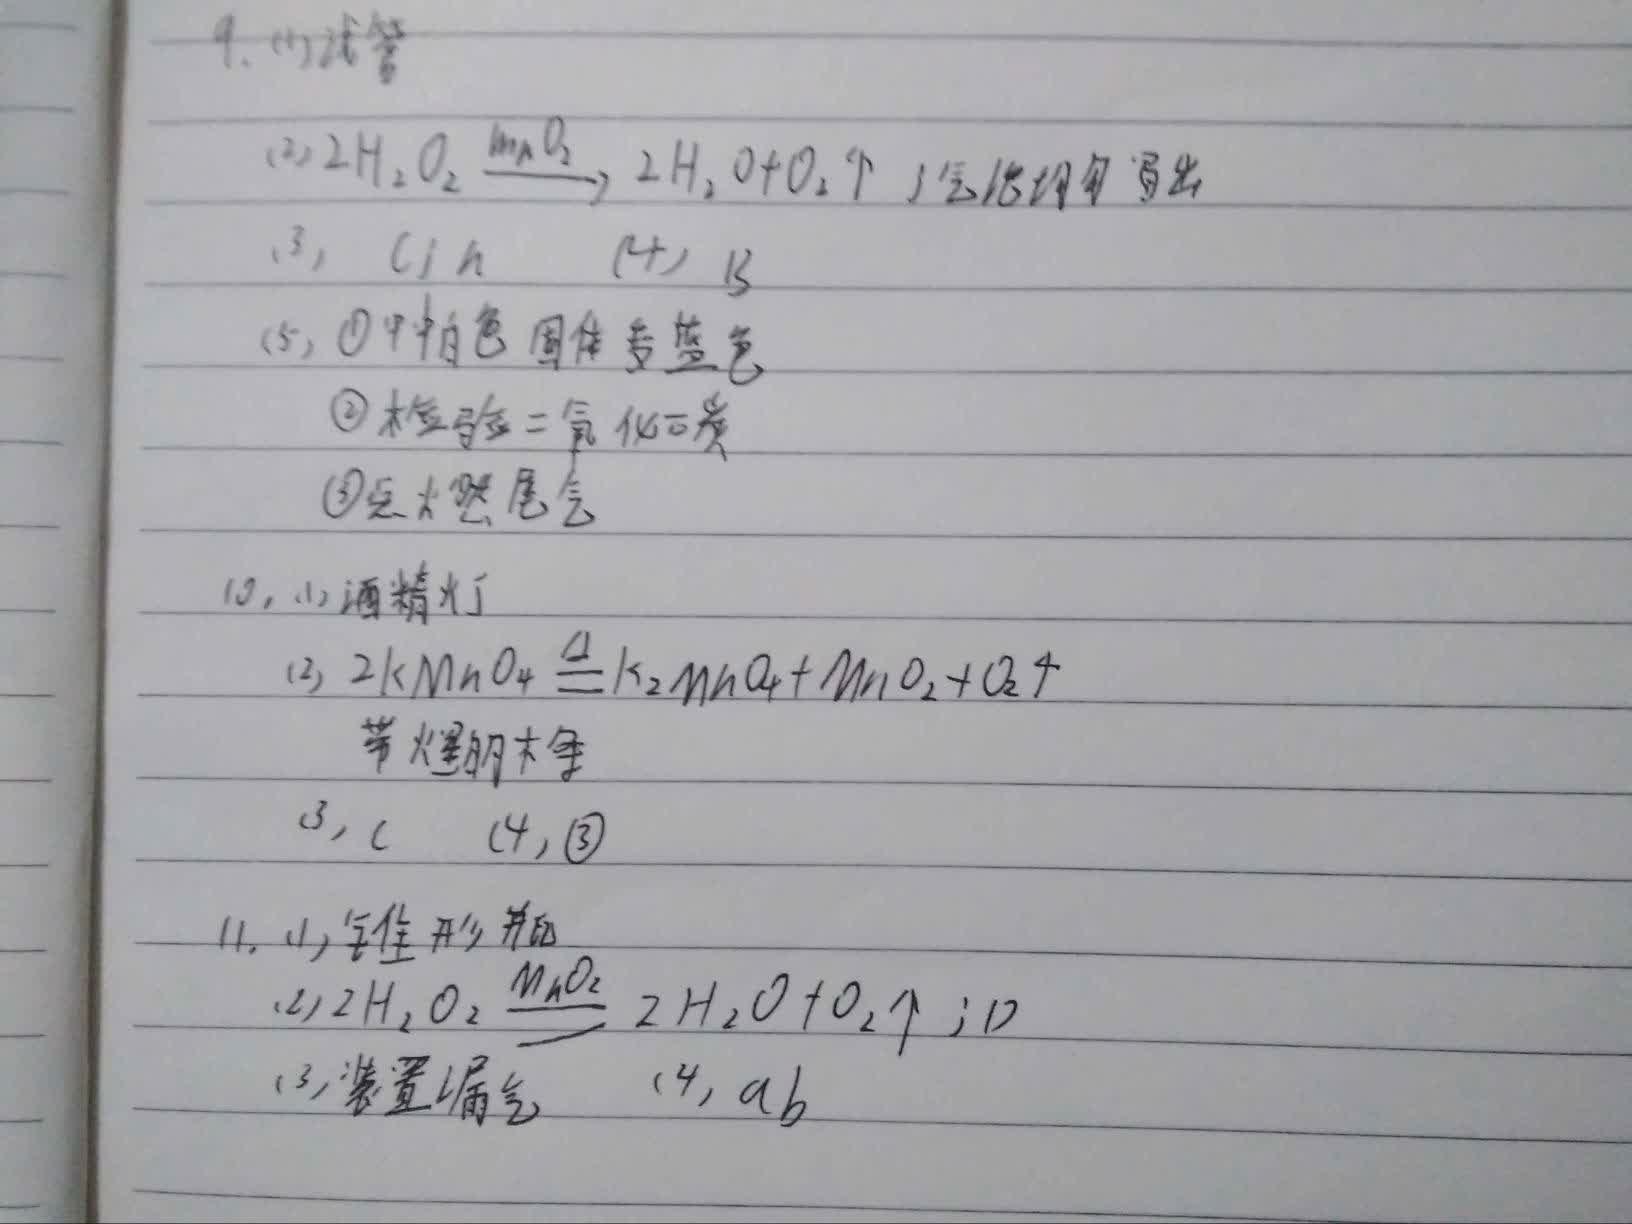 9. (1)试管
(2) 2H₂O₂ MnO₂→ 2H₂O+O₂↑ ;气泡均匀冒出
(3) C;h (4) B
(5) ①中白色固体变蓝色
②检验二氧化碳
③点燃尾气
10. (1)酒精灯
(2) 2KMnO₄ ≜ K₂MnO₄+MnO₂+O₂↑
带火星的木条
(3) C (4) ③
11. (1) 锥形瓶
(2) 2H₂O₂ MnO₂= 2H₂O+O₂↑;D
(3) 装置漏气 (4) ab